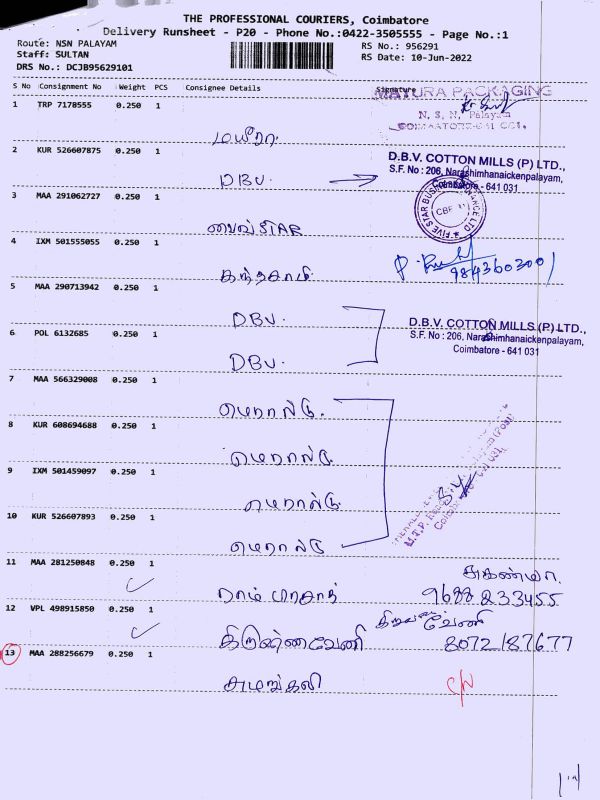 THE PROFESSIONAL COURIERS, Coimbatore
Delivery Runsheet - P20 - Phone No.:0422-3505555 - Page No.:1
Route: NSN PALAYAM
Staff: SULTAN
DRS No.: DCJB95629101
RS No.: 956291
RS Date: 10-Jun-2022
S No Consignment No Weight PCS Consignee Details Signature
1 TRP 7178555 0.250 1
MATURA PACKAGING
N. S. N. Palayam
COIMBATORE-641 031.
2 KUR 526607875 0.250 1
DBV.
D.B.V. COTTON MILLS (P) LTD.,
S.F. No : 206, Narashimhanaickenpalayam,
Coimbatore - 641 031
3 MAA 291062727 0.250 1
பைவ் STAR
FIVE STAR BUSINESS FINANCE LTD
CBE
4 IXM 501555055 0.250 1
கந்தசாமி
9843603001
5 MAA 290713942 0.250 1
DBV.
6 POL 6132685 0.250 1
DBV.
D.B.V. COTTON MILLS (P) LTD.,
S.F. No : 206, Narashimhanaickenpalayam,
Coimbatore - 641 031
7 MAA 566329008 0.250 1
மெரால்டு.
8 KUR 608694688 0.250 1
மெரால்டு
9 IXM 501459097 0.250 1
மெரால்டு
10 KUR 526607893 0.250 1
மெரால்டு
M.T.P. Road
11 MAA 281250848 0.250 1
சுகன்யா.
ராம் பிரசாத் 9688833455
12 VPL 498915850 0.250 1
வேணி
கிருஷ்ணவேணி 8072187677
13 MAA 288256679 0.250 1
சுமங்கலி